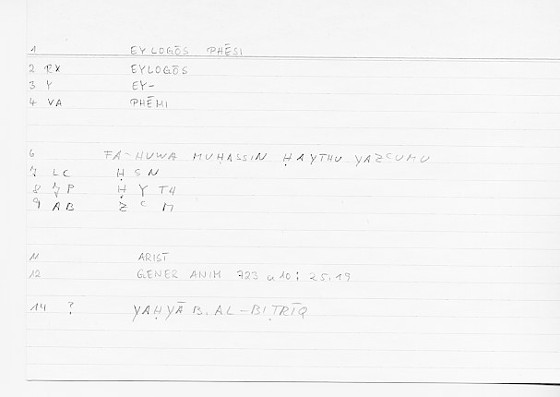 1 EYLOGŌS PHĒSI
2 RX EYLOGŌS
3 Y EY-
4 VA PHĒMI
6 FA-HUWA MUḤASSIN ḤAYTHU YAZCUMU
7 LC Ḥ S N
8 7P Ḥ Y TH
9 AB Z C M
11 ARIST
12 GENER ANIM 723 a10; 25.19
14 ? YAḤYĀ B. AL-BIṬRĪQ